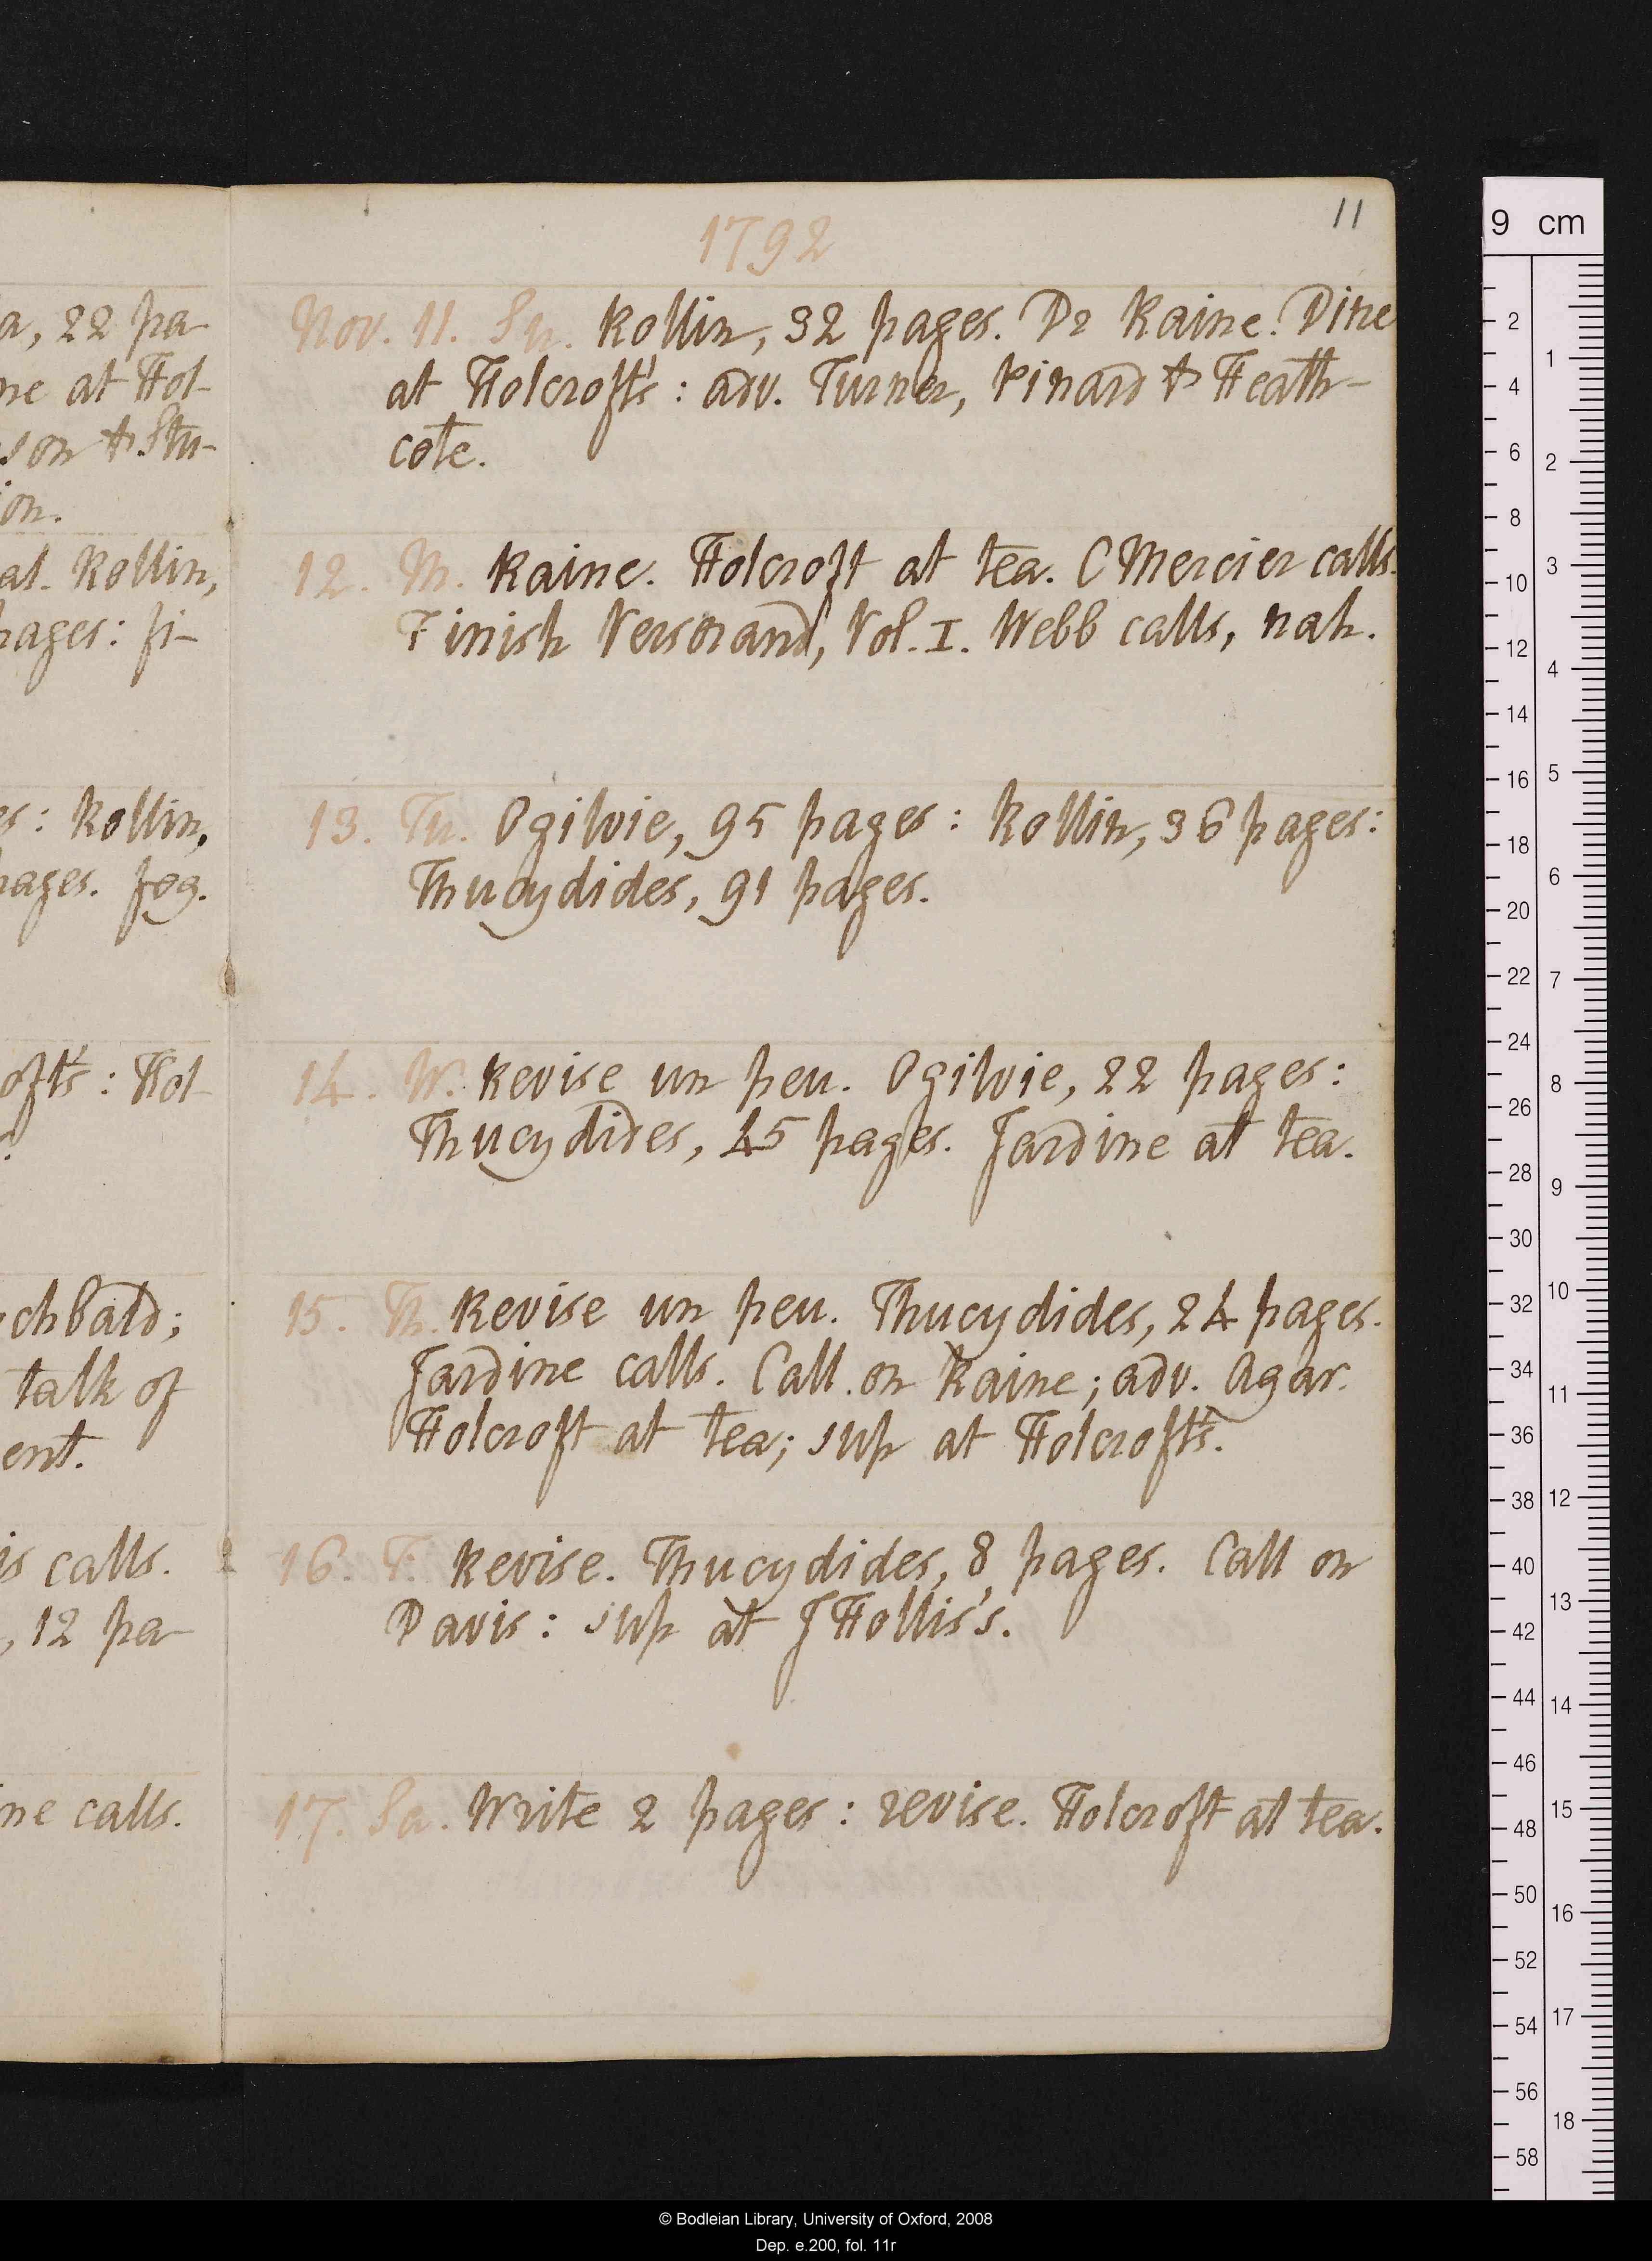 11
1792
Nov. 11. Su. Rollin, 32 pages. Dr Raine. Dine
at Holcroft's: adv. Turner, Pinard & Heath-
cote.
12. M. Raine. Holcroft at tea. C Mercier calls.
Finish Versorand, Vol. I. Webb calls, nah.
13. Tu. Ogilvie, 95 pages: Rollin, 36 pages:
Thucydides, 91 pages.
14. W. Revise un peu. Ogilvie, 22 pages:
Thucydides, 45 pages. Jardine at tea.
15. Th. Revise un peu. Thucydides, 24 pages.
Jardine calls. Call on Raine; adv. Agar.
Holcroft at tea; sup at Holcroft's.
16. F. Revise. Thucydides, 8 pages. Call on
Davis: sup at J Hollis's.
17. Sa. Write 2 pages: revise. Holcroft at tea.
a, 22 pa-
ne at Hol-
son & Stu-
ion.
al. Rollin,
pages: fi-
es: Rollin,
pages. fog.
oft's: Hol-
chbald;
talk of
ent.
is calls.
, 12 pa-
ne calls.
9 cm
2
4
6
8
10
12
14
16
18
20
22
24
26
28
30
32
34
36
38
40
42
44
46
48
50
52
54
56
58
1
2
3
4
5
6
7
8
9
10
11
12
13
14
15
16
17
18
© Bodleian Library, University of Oxford, 2008
Dep. e.200, fol. 11r